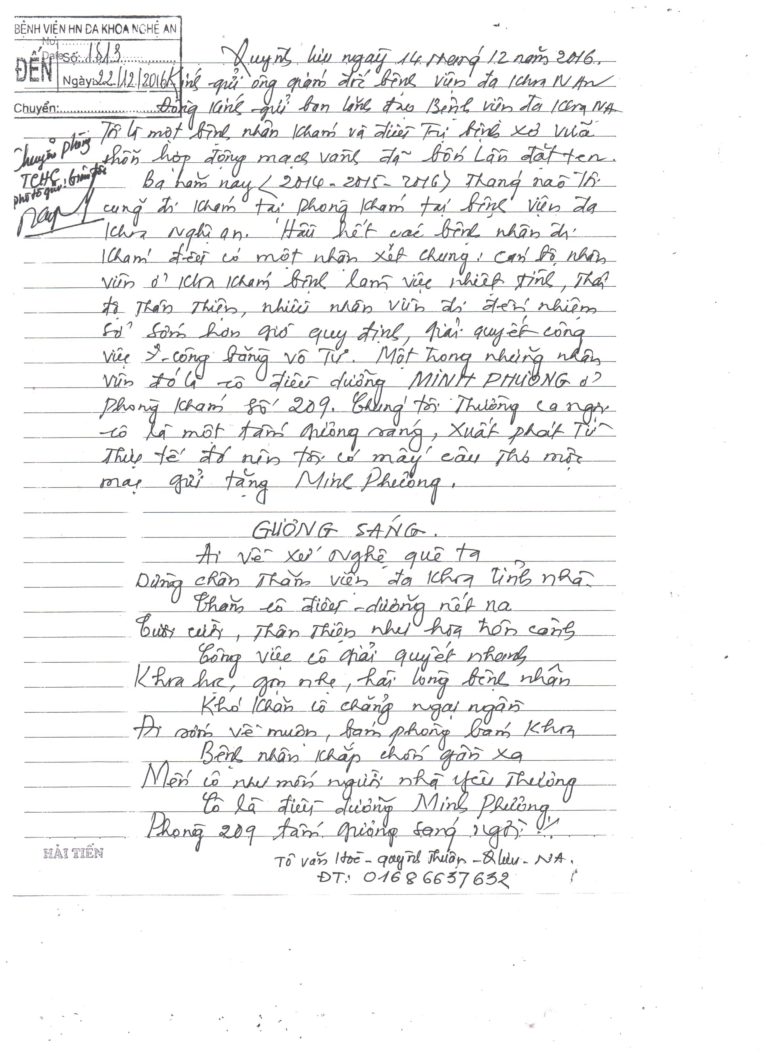 BỆNH VIỆN HN ĐA KHOA NGHỆ AN
No
Date
ĐẾN
Số: 1513
Ngày: 22/12/2016
Chuyển:
Chuyển phòng
TCHC
Quỳnh lưu ngày 14 tháng 12 năm 2016.
Kính gửi ông giám đốc bệnh viện đa khoa N An
Đồng Kính gửi ban lãnh đạo Bệnh viện đa khoa NA
Tôi là một bệnh nhân khám và điều trị bệnh xơ vữa
thổn hợp động mạch vành đã bốn lần đặt ten.
Ba năm nay (2014-2015-2016) Tháng nào tôi
cũng đi khám tại phòng khám tại bệnh viện đa
khoa Nghệ an. Hầu hết các bệnh nhân đi
khám đều có một nhận xét chung: cán bộ nhân
viên ở khoa khám bệnh làm việc nhiệt tình, Thái
độ Thân Thiện, nhiều nhân viên đi đến nhiệm
sở sớm hơn giờ quy định, giải quyết công
việc công bằng vô Tư. Một Trong những nhân
viên đó là cô điều dưỡng MINH PHƯƠNG ở
phòng khám số 209. Chúng tôi Thường ca ngợi
cô là một tấm gương sáng, Xuất phát Từ
Thực tế đó nên tôi có mấy câu Thơ mộc
mạc gửi tặng Minh Phương.
GƯƠNG SÁNG.
Ai về xứ nghệ quê ta
Dừng chân Thăm viện đa khoa tỉnh nhà
Thăm cô điều-dưỡng nết na
Tươi cười, Thân Thiện như hoa trên cành
Công việc cô giải quyết nhanh
Khoa học, gọn nhẹ, hài lòng bệnh nhân
Khó khăn cô chẳng ngại ngần
Đi sớm về muộn, bám phòng bám khoa
Bệnh nhân khắp chốn gần xa
Mến cô như mến người nhà yêu Thương
Cô là điều dưỡng Minh Phương
Phòng 209 tấm gương sáng ngời!!!
HẢI TIẾN
Tô Văn Hoè - Quỳnh Thuận - Q Lưu - NA.
ĐT: 01686637632